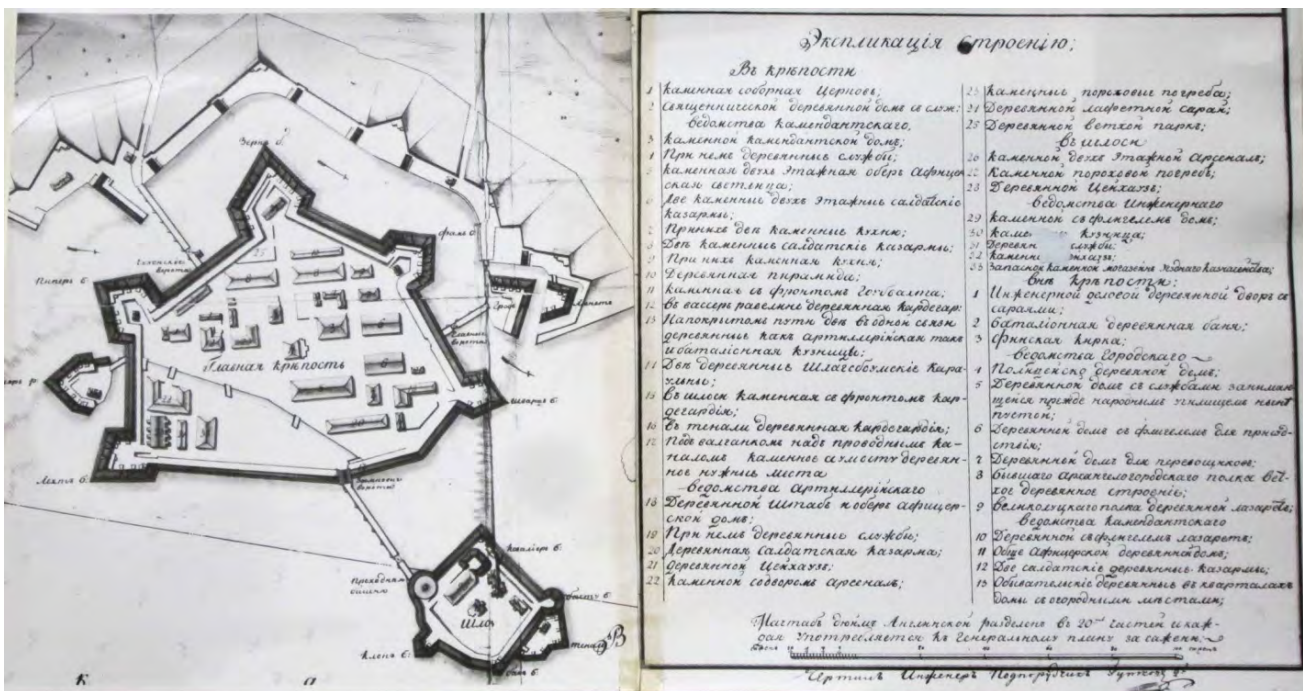 Зернъ б.
Питеръ б.
Главная крѣпость
Шварцъ б.
Шлоз
Кленъ б.
В
к
а
Экспликація строенію;
Въ крѣпости
1 Каменная соборная Церковь;
2 Священнической деревянной домъ съ служ:
ведомства Камендантскаго,
3 Каменной Камендантской домъ;
4 При немъ деревянные службы;
5 Каменная двухъ Этажная оберъ Афицер
ская светлица;
6 Две каменные двухъ Этажные салдатскіе
казармы;
7 При нихъ двѣ каменные кухни;
8 Двѣ каменные салдатскіе казармы;
9 При нихъ каменная кухня;
10 Деревянная пирамида;
11 Каменная съ фронтомъ Гоубвахта;
12 Въ вассеръ равелине деревянная Кардегар:
13 На покрытомъ пути двѣ въ одной связи
деревянные какъ артиллерійская такъ
и баталіонная кузницы;
14 Двѣ деревянные Шлагбоумскіе Кара-
ульны;
15 Въ шлоси каменная съ фронтомъ кар-
дегардія;
16 Въ тенали деревянная кардегардія;
17 Подъ валгангомъ надъ проводнымъ ка-
наломъ каменное а къ мосту деревян-
ное нужные места
ведомства Артиллерійскаго
18 Деревянной Штабъ и оберъ афицер-
ской домъ;
19 При немъ деревянные службы;
20 Деревянная салдатская казарма;
21 Деревянной Цейхаузъ;
22 Каменной съ дворомъ арсеналъ;
23 Каменные пороховые погреба;
24 Деревянной лафетной сарай;
25 Деревянной ветхой паркъ;
въ шлоси
26 Каменной двухъ Этажной Арсеналъ;
27 Каменной пороховой погребъ;
28 Деревянной Цейхаузъ;
ведомства Инженернаго
29 Каменной съ флигелемъ домъ;
30 Каме кузница;
31 Деревян службы;
32 Каменн
33 Запасной каменной магазеинъ
внѣ крѣпости;
1 Инженерной деловой деревянной дворъ съ
сараями;
2 Баталіонная деревянная баня;
3 Финская Кирка;
ведомства Городскаго
4 Полицейской деревянной домъ;
5 Деревянной домъ съ службами занимаю
щейся прежде народнымъ училищемъ ныне
пустой;
6 Деревянной домъ съ флигелемъ для присуд-
ствія;
7 Деревянной домъ для перевощиковъ;
8 бывшаго Архангелогородскаго полка вет-
хое деревянное строеніе;
9 Великолуцкаго полка деревянной лазаретъ;
ведомства Камендантскаго
10 Деревянной съ флигелемъ лазаретъ;
11 Обще Афицерской деревянной домъ;
12 Две салдатскіе деревянные казармы;
13 Обывательскіе деревянные въ кварталахъ
домы съ огородными местами;
Маштабъ дюймъ Англинской разделенъ въ 20 частей и каж-
дая употребляется къ генеральному плану за сажень.
Чертилъ Инженеръ Подпорутчикъ